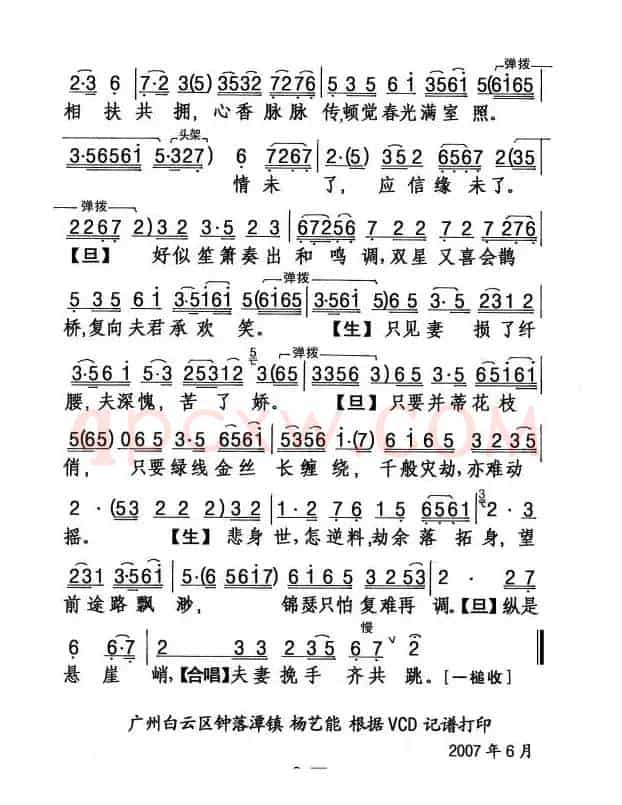 弹拨
2·3 6 | 7·2 3(5) 3532 7276 | 5 3 5 6 i 3561 5(6i65
相扶共拥，心香脉脉传，顿觉春光满室照。
头架
3·5656i 5·327) 6 7267 | 2·(5) 352 6567 2(35
情未了，应信缘未了。
弹拨
2267 2)32 3·5 23 | 67256 7 2 2 7 2 7276
【旦】 好似笙箫奏出和鸣调，双星又喜会鹊
弹拨
5 3 5 6 i 3·5i6i 5(6i65 | 3·561 5)65 3·5 2312
桥，复向夫君承欢笑。 【生】只见妻损了纤
弹拨
3·56i 5·3 25312 3(65 | 3356 3)65 3·5 65i6i
腰，夫深愧，苦了娇。 【旦】只要并蒂花枝
5(65) 065 3·5 656i | 5356 i·(7) 6 i 6 5 3 235
俏，只要绿线金丝长缠绕，千般灾劫，亦难动
2·(53 2 2 2 3 2) | 1·2 76 15 6561 | 2·3
摇。 【生】悲身世，怎逆料，劫余落拓身，望
231 3·56i | 5·(6 56i7 6i5) 3·5 32 253 | 2· 27
前途路飘渺， 锦瑟只怕复难再调。【旦】纵是
慢
6 6·7 | 2 3 3 2 3 5 6 7 V 2
悬崖峭，【合唱】夫妻挽手齐共跳。［一槌收］
广州白云区钟落潭镇 杨艺能 根据VCD 记谱打印
2007 年 6 月